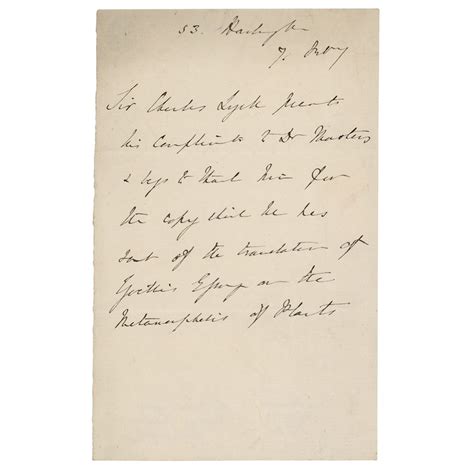 53. Harley St
7. Nov
Sir Charles Lyell presents
his Compliments to Dr Masters
& begs to thank him for
the copy which he has
sent of the translation of
Goethe's Essay on the
Metamorphosis of Plants